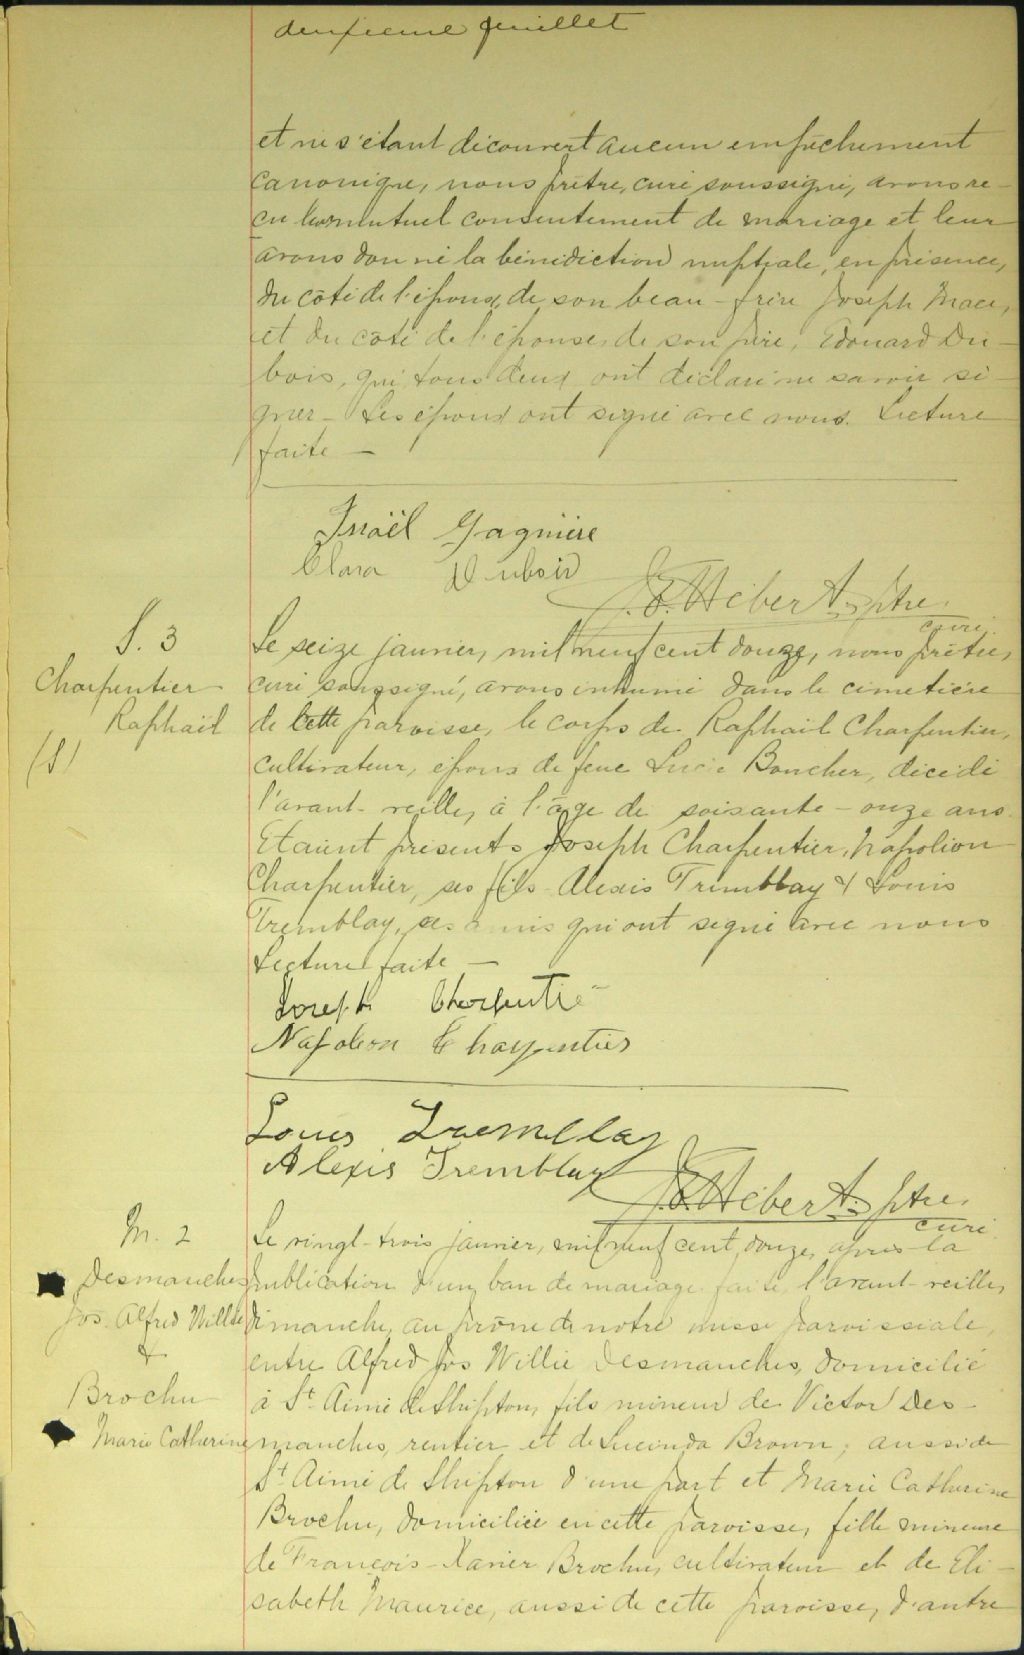 deuxième feuillet
et ne s'étant découvert aucun empêchement
canonique, nous prêtre, curé soussigné, avons re-
çu leur mutuel consentement de mariage et leur
avons donné la bénédiction nuptiale, en présence,
du côté de l'époux, de son beau-frère Joseph
et du côté de l'épouse, de son père, Edouard Du-
bois, qui tous deux ont déclaré ne savoir si-
gner - Les époux ont signé avec nous. Lecture
faite -
Israël Gagnière
Clara Dubois
J. E. Hébert, ptre,
curé.
S. 3
Charpentier
Raphaël
(S)
Le seize janvier, mil neuf cent douze, nous prêtre,
curé soussigné, avons inhumé dans le cimetière
de cette paroisse, le corps de Raphaël Charpentier,
cultivateur, époux de feue Lucie Boucher, décédé
l'avant-veille, à l'âge de soixante-onze ans.
Etaient présents Joseph Charpentier, Napoléon
Charpentier, ses fils - Alexis Trimblay & Louis
Tremblay, ses amis qui ont signé avec nous
Lecture faite -
Joseph Charpentie
Napoleon Charpentier
Louis Tremblay
Alexis Tremblay
J. E. Hébert, ptre,
curé.
M. 2
Desmanches
Jos. Alfred Willie
&
Brochu
Marie Catherine
Le vingt-trois janvier, mil neuf cent douze, après la
publication d'un ban de mariage faite, l'avant-veille,
dimanche, au prône de notre messe paroissiale,
entre Alfred Jos Willie Desmanches, domicilié
à St Aimé de Shipton, fils mineur de Victor Des-
manches, rentier et de Lucinda Brown, aussi de
St Aimé de Shipton d'une part et Marie Catherine
Brochu, domiciliée en cette paroisse, fille mineure
de François-Xavier Brochu, cultivateur et de Eli-
sabeth Maurice, aussi de cette paroisse, d'autre